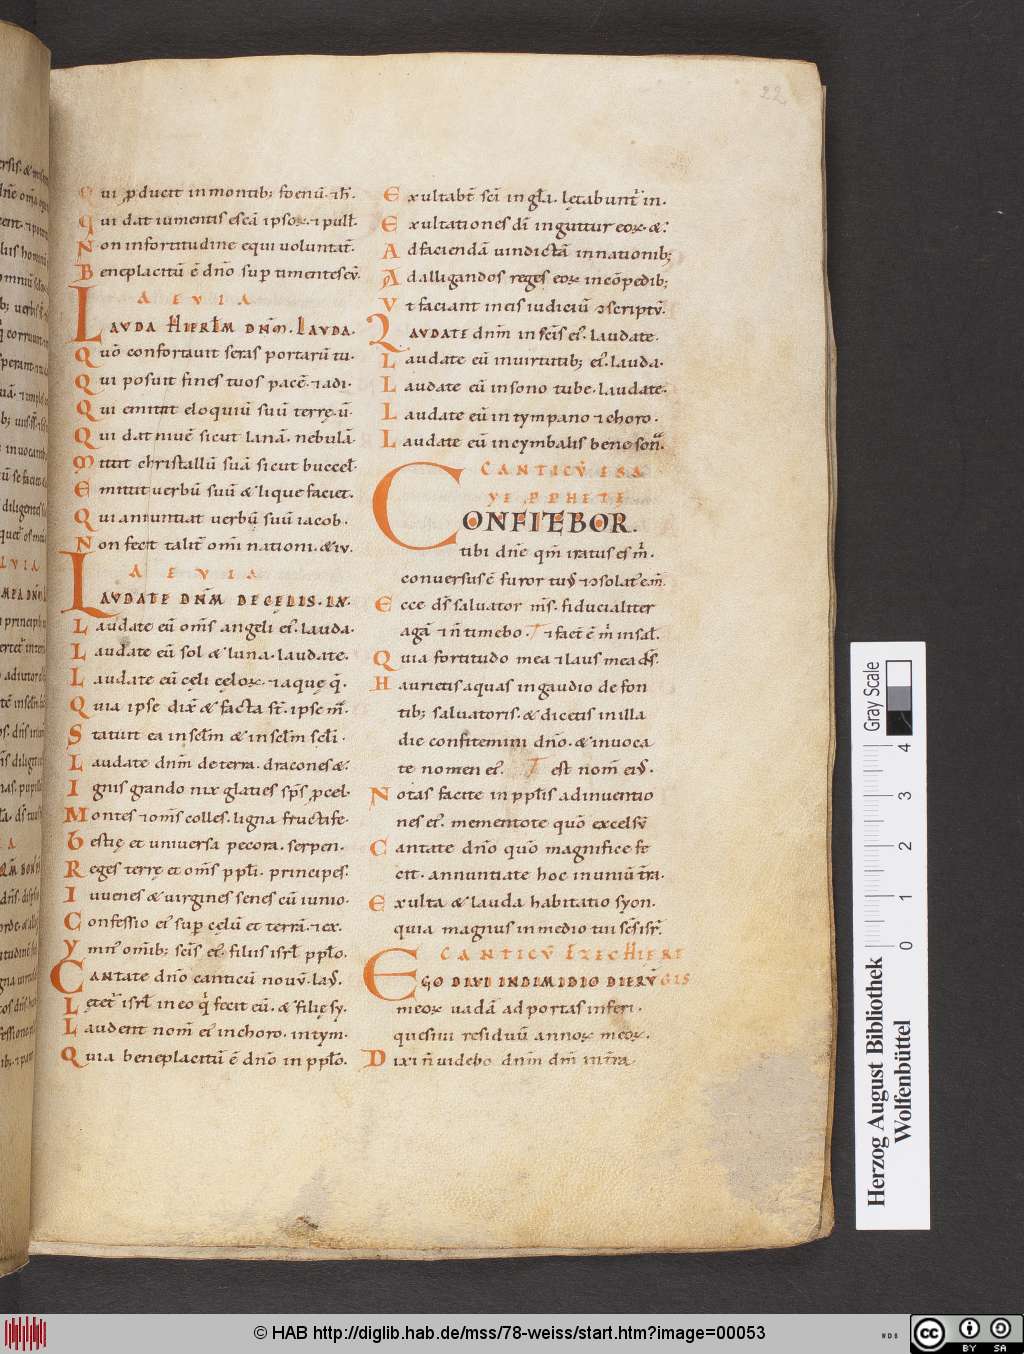 22
Qui ꝓducit in montib; foenū. ⁊ h̄.
Qui dat iumentis escā ipsoꝝ. ⁊ pull̄.
Non in fortitudine equi uoluntat̄.
Beneplacitū ē dn̄o sup̱ timentes eū.
AEVIA
LAVDA HIERL̄M DN̄M. LAVDA.
Quō confortauit seras portarū tu.
Qui posuit fines tuos pacē. ⁊ adi.
Qui emittit eloquiū suū terrę. u.
Qui dat niuē sicut lanā. nebulā.
Mittit christallū suā sicut buccel̄.
Emittit uerbū suū & lique faciet.
Qui annuntiat uerbū suū iacob.
Non fecit talit̄ om̄i nationi. & iu.
AEVIA
LAVDATE DN̄M DE CĘLIS. LA.
Laudate eū om̄s angeli ei᷒. lauda.
Laudate eū sol & luna. laudate.
Laudate eū cęli cęloꝝ. ⁊ aquę q̄.
Quia ipse dix̄ & facta st̄. ipse m̄.
Statuit ea in sel̄m & in sel̄m sel̄i.
Laudate dn̄m de terra. dracones &.
Ignis grando nix glaties sp̄s ꝓcel.
Montes ⁊ om̄s colles. ligna fructife.
Bestię et uniuersa pecora. serpen.
Reges terrę et om̄s pp̄li. principes.
Iuuenes & uirgines senes cū iunio.
Confessio ei᷒ sup̱ cęlū et terrā. ⁊ ex.
Ymn᷒ om̄ib; sc̄is ei᷒. filiis isrl̄ pp̄lo.
Cantate dn̄o canticū nouū. lau᷒.
Lętet᷒ isrl̄ in eo q̄ fecit eū. & filię sy.
Laudent nom̄ ei᷒ in choro. in tym.
Quia beneplacitū ē dn̄o in pp̄lo.
Exultabt̄ sc̄i in gl̄a. lętabunt᷒ in.
Exultationes dī in guttur eoꝝ. &.
Ad faciendā uindictā in nationib;
Ad alligandos reges eoꝝ in cōpedib;
Vt faciant in eis iudiciū ꝯscriptū.
LAVDATE dn̄m in sc̄is ei᷒. laudate.
Laudate eū in uirtutib; ei᷒. lauda.
Laudate eū in sono tube. laudate.
Laudate eū in tympano ⁊ choro.
Laudate eū in cymbalis bene son̄.
CANTICV̄ ISA
YE PPHETE
CONFITEBOR.
tibi dn̄e qm̄ iratus es m̄.
conuersus ē furor tuus ⁊ ꝯsolat᷒ ē m̄.
Ecce ds̄ saluator m̄s. fiducialiter
agā ⁊ n̄ timebo. ⁊ fact᷒ ē m̄ in sal̄.
Quia fortitudo mea ⁊ laus mea ds̄.
Haurietis aquas in gaudio de fon
tib; saluatoris. & dicetis in illa
die confitemini dn̄o. & inuoca
te nomen ei᷒. est nom̄ ei᷒.
Notas facite in pp̄lis adinuentio
nes ei᷒. mementote quō excelsū
Cantate dn̄o quō magnifice fe
cit. annuntiate hoc in uniū t̄ra.
Exulta & lauda habitatio syon.
quia magnus in medio tui sc̄s isrl̄.
CANTICV̄ EZECHIE RE
EGO DIXI IN DIMIDIO DIERV̄ GIS
meoꝝ uadā ad portas inferi.
quesiui residuū annoꝝ meoꝝ.
Dixi n̄ uidebo dn̄m dm̄ in t̄ra
Gray Scale
0 1 2 3 4
Herzog August Bibliothek
Wolfenbüttel
© HAB http://diglib.hab.de/mss/78-weiss/start.htm?image=00053
cc BY SA